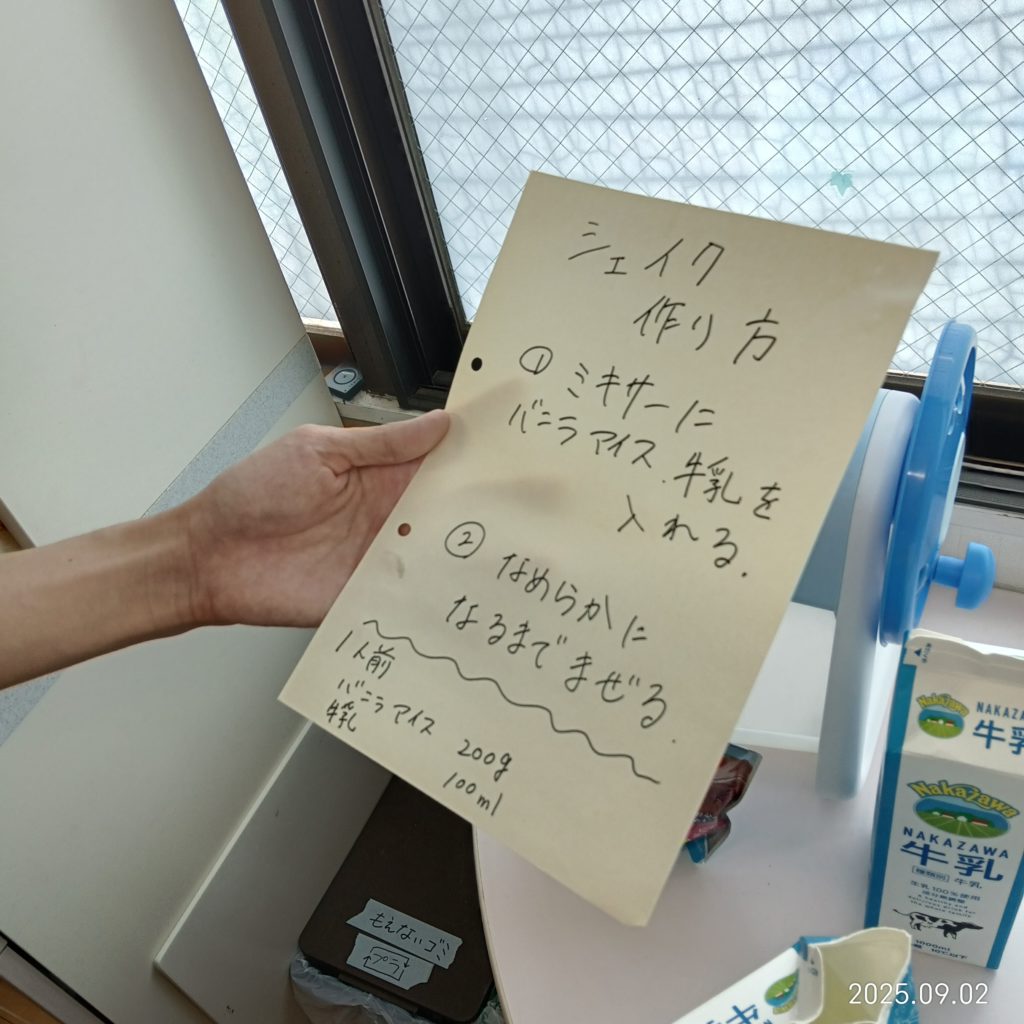 シェイク
作り方
① ミキサーに
バニラアイス、牛乳を
入れる.
② なめらかに
なるまでまぜる.
1人前
バニラアイス 200g
牛乳 100ml
もえないゴミ
プラ
Nakazawa
NAKAZA
牛乳
Nakazawa
NAKAZAWA
牛乳
[種類別] 牛乳
生乳100%使用
成分無調整
1000ml
10℃以下
2025.09.02